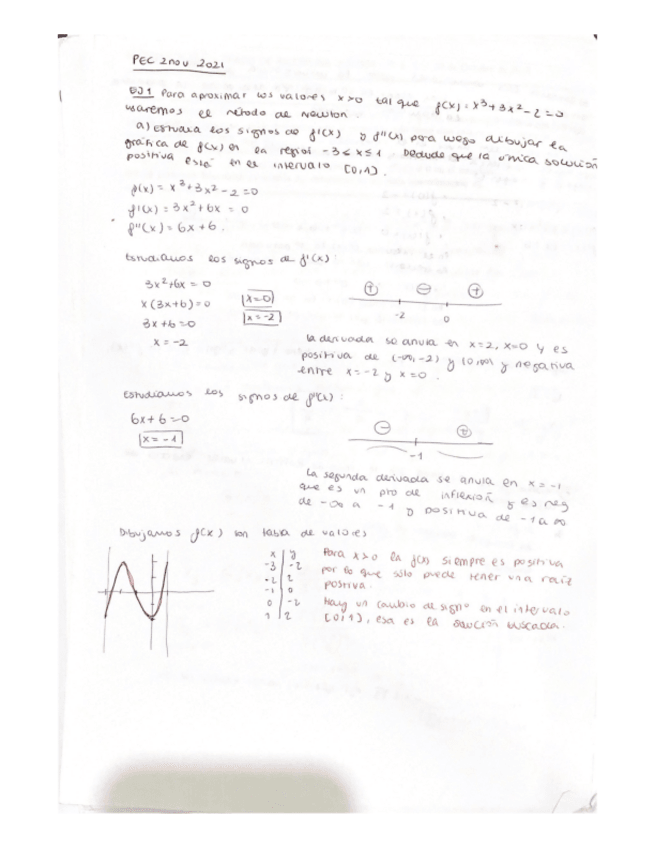 PEC 2nov 2021
EJ1 Para aproximar los valores x>0 tal que f(x) = x³+3x²-2=0
usaremos el método de Newton.
a) Estudia los signos de f'(x) y f''(x) para luego dibujar la
gráfica de f(x) en la región -3≤x≤1. Dedude que la única solución
positiva está en el intervalo [0,1].
f(x) = x³+3x²-2=0
f'(x) = 3x²+6x = 0
f''(x) = 6x+6.
Estudiamos los signos de f'(x):
3x²+6x = 0
x(3x+6)=0
3x+6=0
x = -2
x=0
x=-2
+ - +
-2 0
la derivada se anula en x=2, x=0 y es
positiva de (-∞,-2) y (0,∞) y negativa
entre x=-2 y x=0.
Estudiamos los signos de f''(x):
6x+6=0
x=-1
- +
-1
La segunda derivada se anula en x=-1
que es un pto de inflexión y es neg
de -∞ a -1 y positiva de -1 a ∞
Dibujamos f(x) con tabla de valores
x y
-3 -2
-2 2
-1 0
0 -2
1 2
Para x>0 la f'(x) siempre es positiva
por lo que sólo puede tener una raíz
positiva.
Hay un cambio de signo en el intervalo
[0,1], esa es la solución buscada.